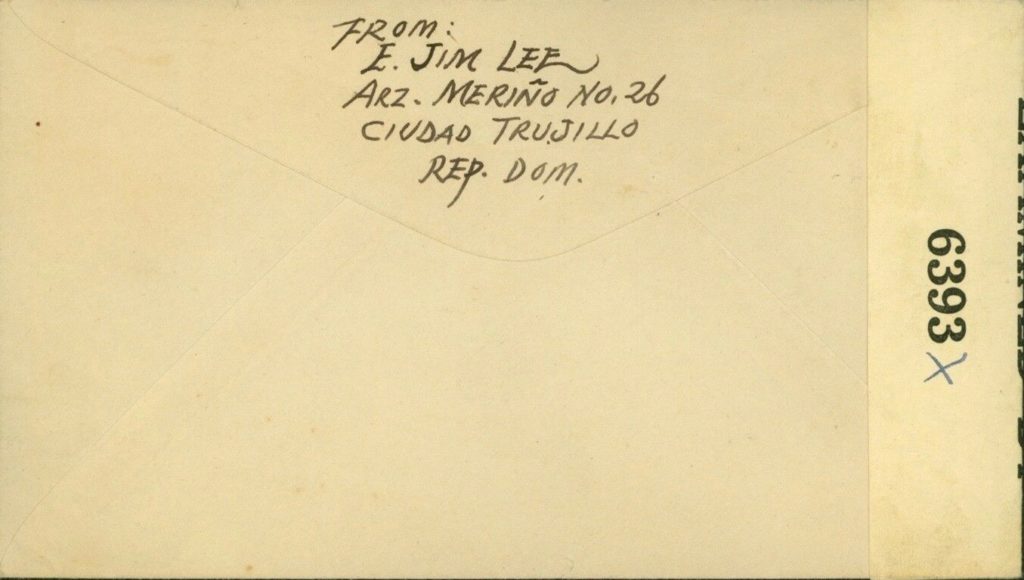 FROM:
E. JIM LEE
ARZ. MERIÑO NO. 26
CIUDAD TRUJILLO
REP. DOM.
6393 X